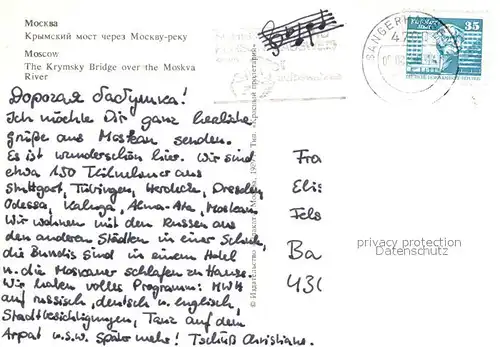 Москва
Крымский мост через Москву-реку
Moscow
The Krymsky Bridge over the Moskva
River
Дорогая бабушка!
Ich möchte Dir ganz herzliche
Grüße aus Moskau senden.
Es ist wunderschön hier. Wir sind
etwa 150 Teilnehmer aus
Stuttgart, Tübingen, Herdecke, Dresden,
Odessa, Kaluga, Alma-Ata, Moskau.
Wir wohnen mit den Russen aus
den anderen Städten in einer Schule,
die Bundis sind in einem Hotel
u. die Moskauer schlafen zu Hause.
Wir haben volles Programm: MWH
auf russisch, deutsch u. englisch,
Stadtbesichtigungen, Tanz auf dem
Arpat u.s.w. Später mehr! Tschüß Christiane.
35
SANGERH
47
Fra
Elis
Fels
Ba
430
privacy protection
Datenschutz